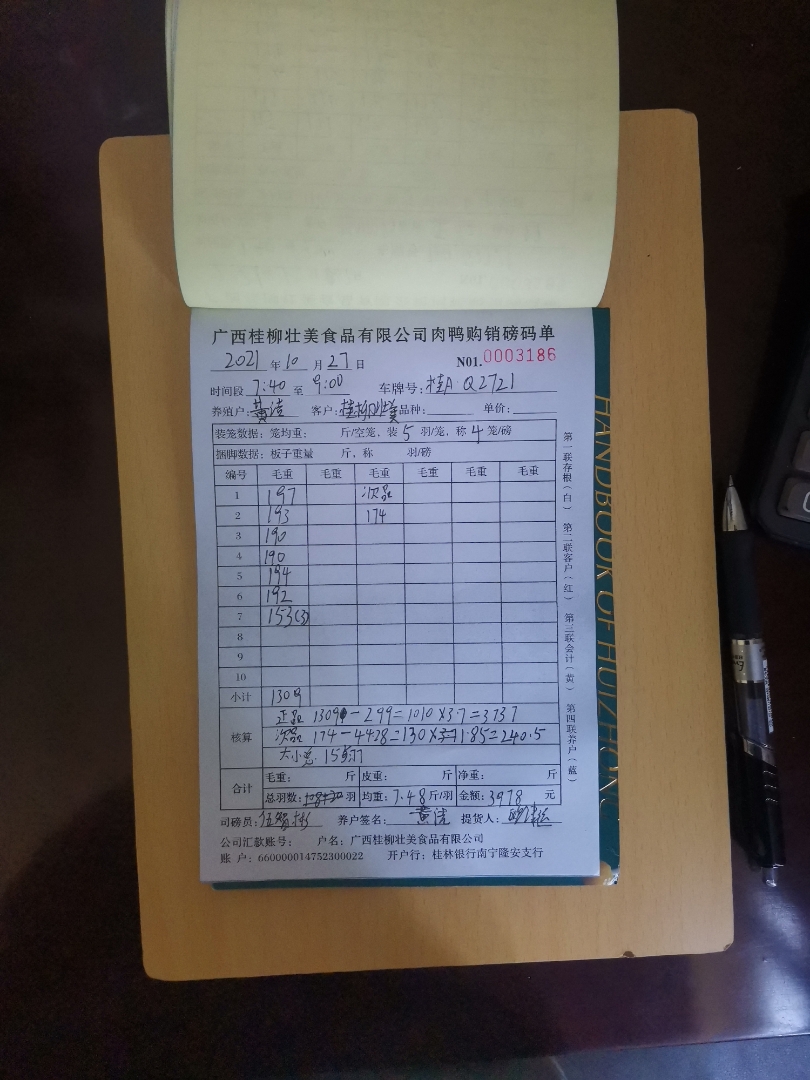 广西桂柳壮美食品有限公司肉鸭购销磅码单
2021 年 10 月 27 日 N01.0003186
时间段 7:40 至 9:00 车牌号: 桂A Q2721
养殖户: 黄洁 客户: 桂柳壮美 品种: 单价:
装笼数据: 笼均重: 斤/空笼, 装 5 羽/笼, 称 4 笼/磅
捆脚数据: 板子重量 斤, 称 羽/磅
编号 毛重 毛重 毛重 毛重 毛重 毛重
1 197 次品
2 193 174
3 190
4 190
5 194
6 192
7 153(3)
8
9
10
小计 1309
核算 正品 1309 - 299 = 1010 × 3.7 = 3737
次品 174 - 44 = 130 × 1.85 = 240.5
大小总 15
合计 毛重: 斤 皮重: 斤 净重: 斤
总羽数: 羽 均重: 7.48 斤/羽 金额: 3978 元
司磅员: 养户签名: 黄洁 提货人:
公司汇款账号: 户名: 广西桂柳壮美食品有限公司
账 户: 660000014752300022 开户行: 桂林银行南宁隆安支行
第一联存根(白) 第二联客户(红) 第三联会计(黄) 第四联养户(蓝)
HANDBOOK OF HUIZHONG